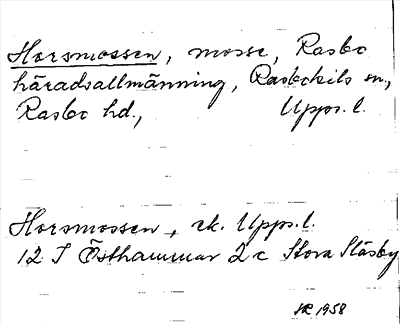 Horsmossen, mosse, Rasbo
häradsallmänning, Rasbokils sn,
Rasbo hd., Upps. l.
Horsmossen, ek. Upps. l.
12 I Östhammar 2 c Stora Städsby
1958